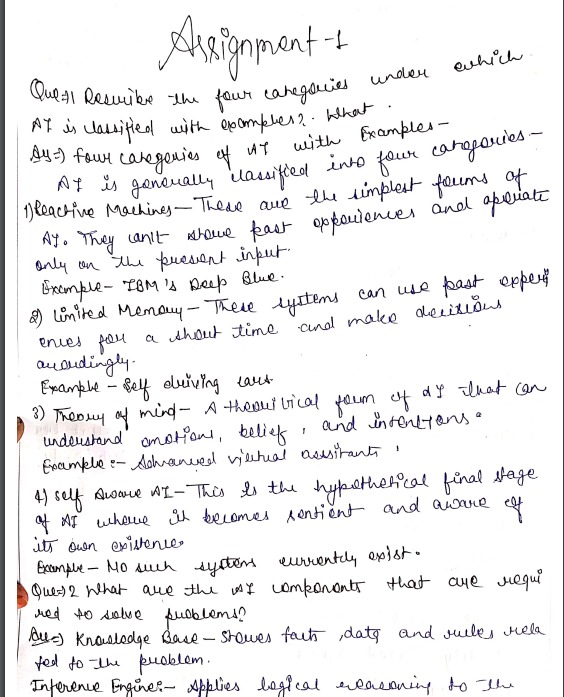 Assignment-1
Que:1 Describe the four categories under which
AI is classified with examples?. What.
Ans=) four categories of AI with Examples-
AI is generally classified into four categories-
1) Reactive Machines- These are the simplest forms of
AI. They can't store past experiences and operate
only on the present input.
Example- IBM's Deep Blue.
2) Limited Memory- These systems can use past experi
ences for a short time and make decisions
accordingly.
Example - Self driving cars
3) Theory of mind- A theoritical form of AI that can
understand emotions, belief, and intentions.
Example:- Advanced virtual assistants.
4) Self Aware AI- This is the hypothetical final stage
of AI where it becomes sentient and aware of
its own existence.
Example- No such systems currently exist.
Que:2 What are the AI components that are requi
red to solve problems?
Ans=) Knowledge Base- Stores facts, data and rules rela
ted to the problem.
Inference Engine:- Applies logical reasoning to the